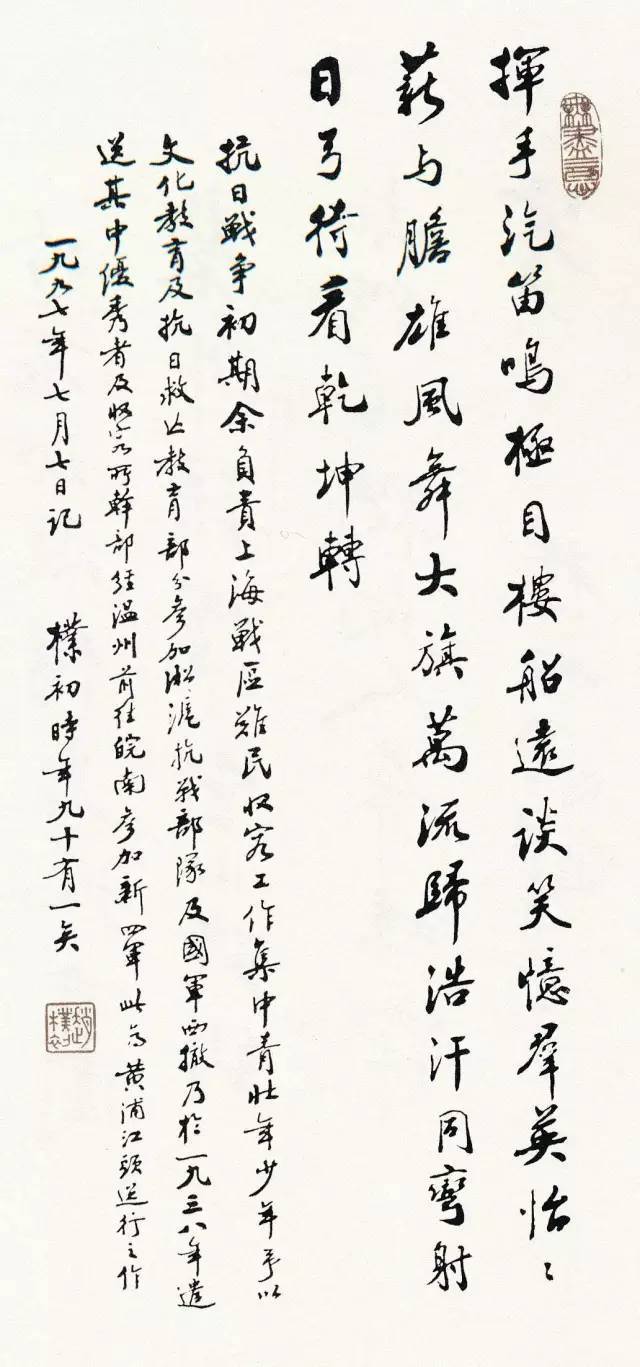 揮手汽笛鳴極目樓船遠談笑憶羣英怡〻
薪与膽雄風舞大旗萬流歸浩汗同彎射
日弓待看乾坤轉
抗日戰争初期余負責上海戰區難民收容工作集中青壯年少年予以
文化教育及抗日救亡教育部分參加淞滬抗战部隊及國軍西撤乃於一九三八年遣
送其中優秀者及收容所幹部經温州前往皖南參加新四軍此為黄浦江頭送行之作
一九九七年七月七日記 樸初時年九十有一矣
趙樸初